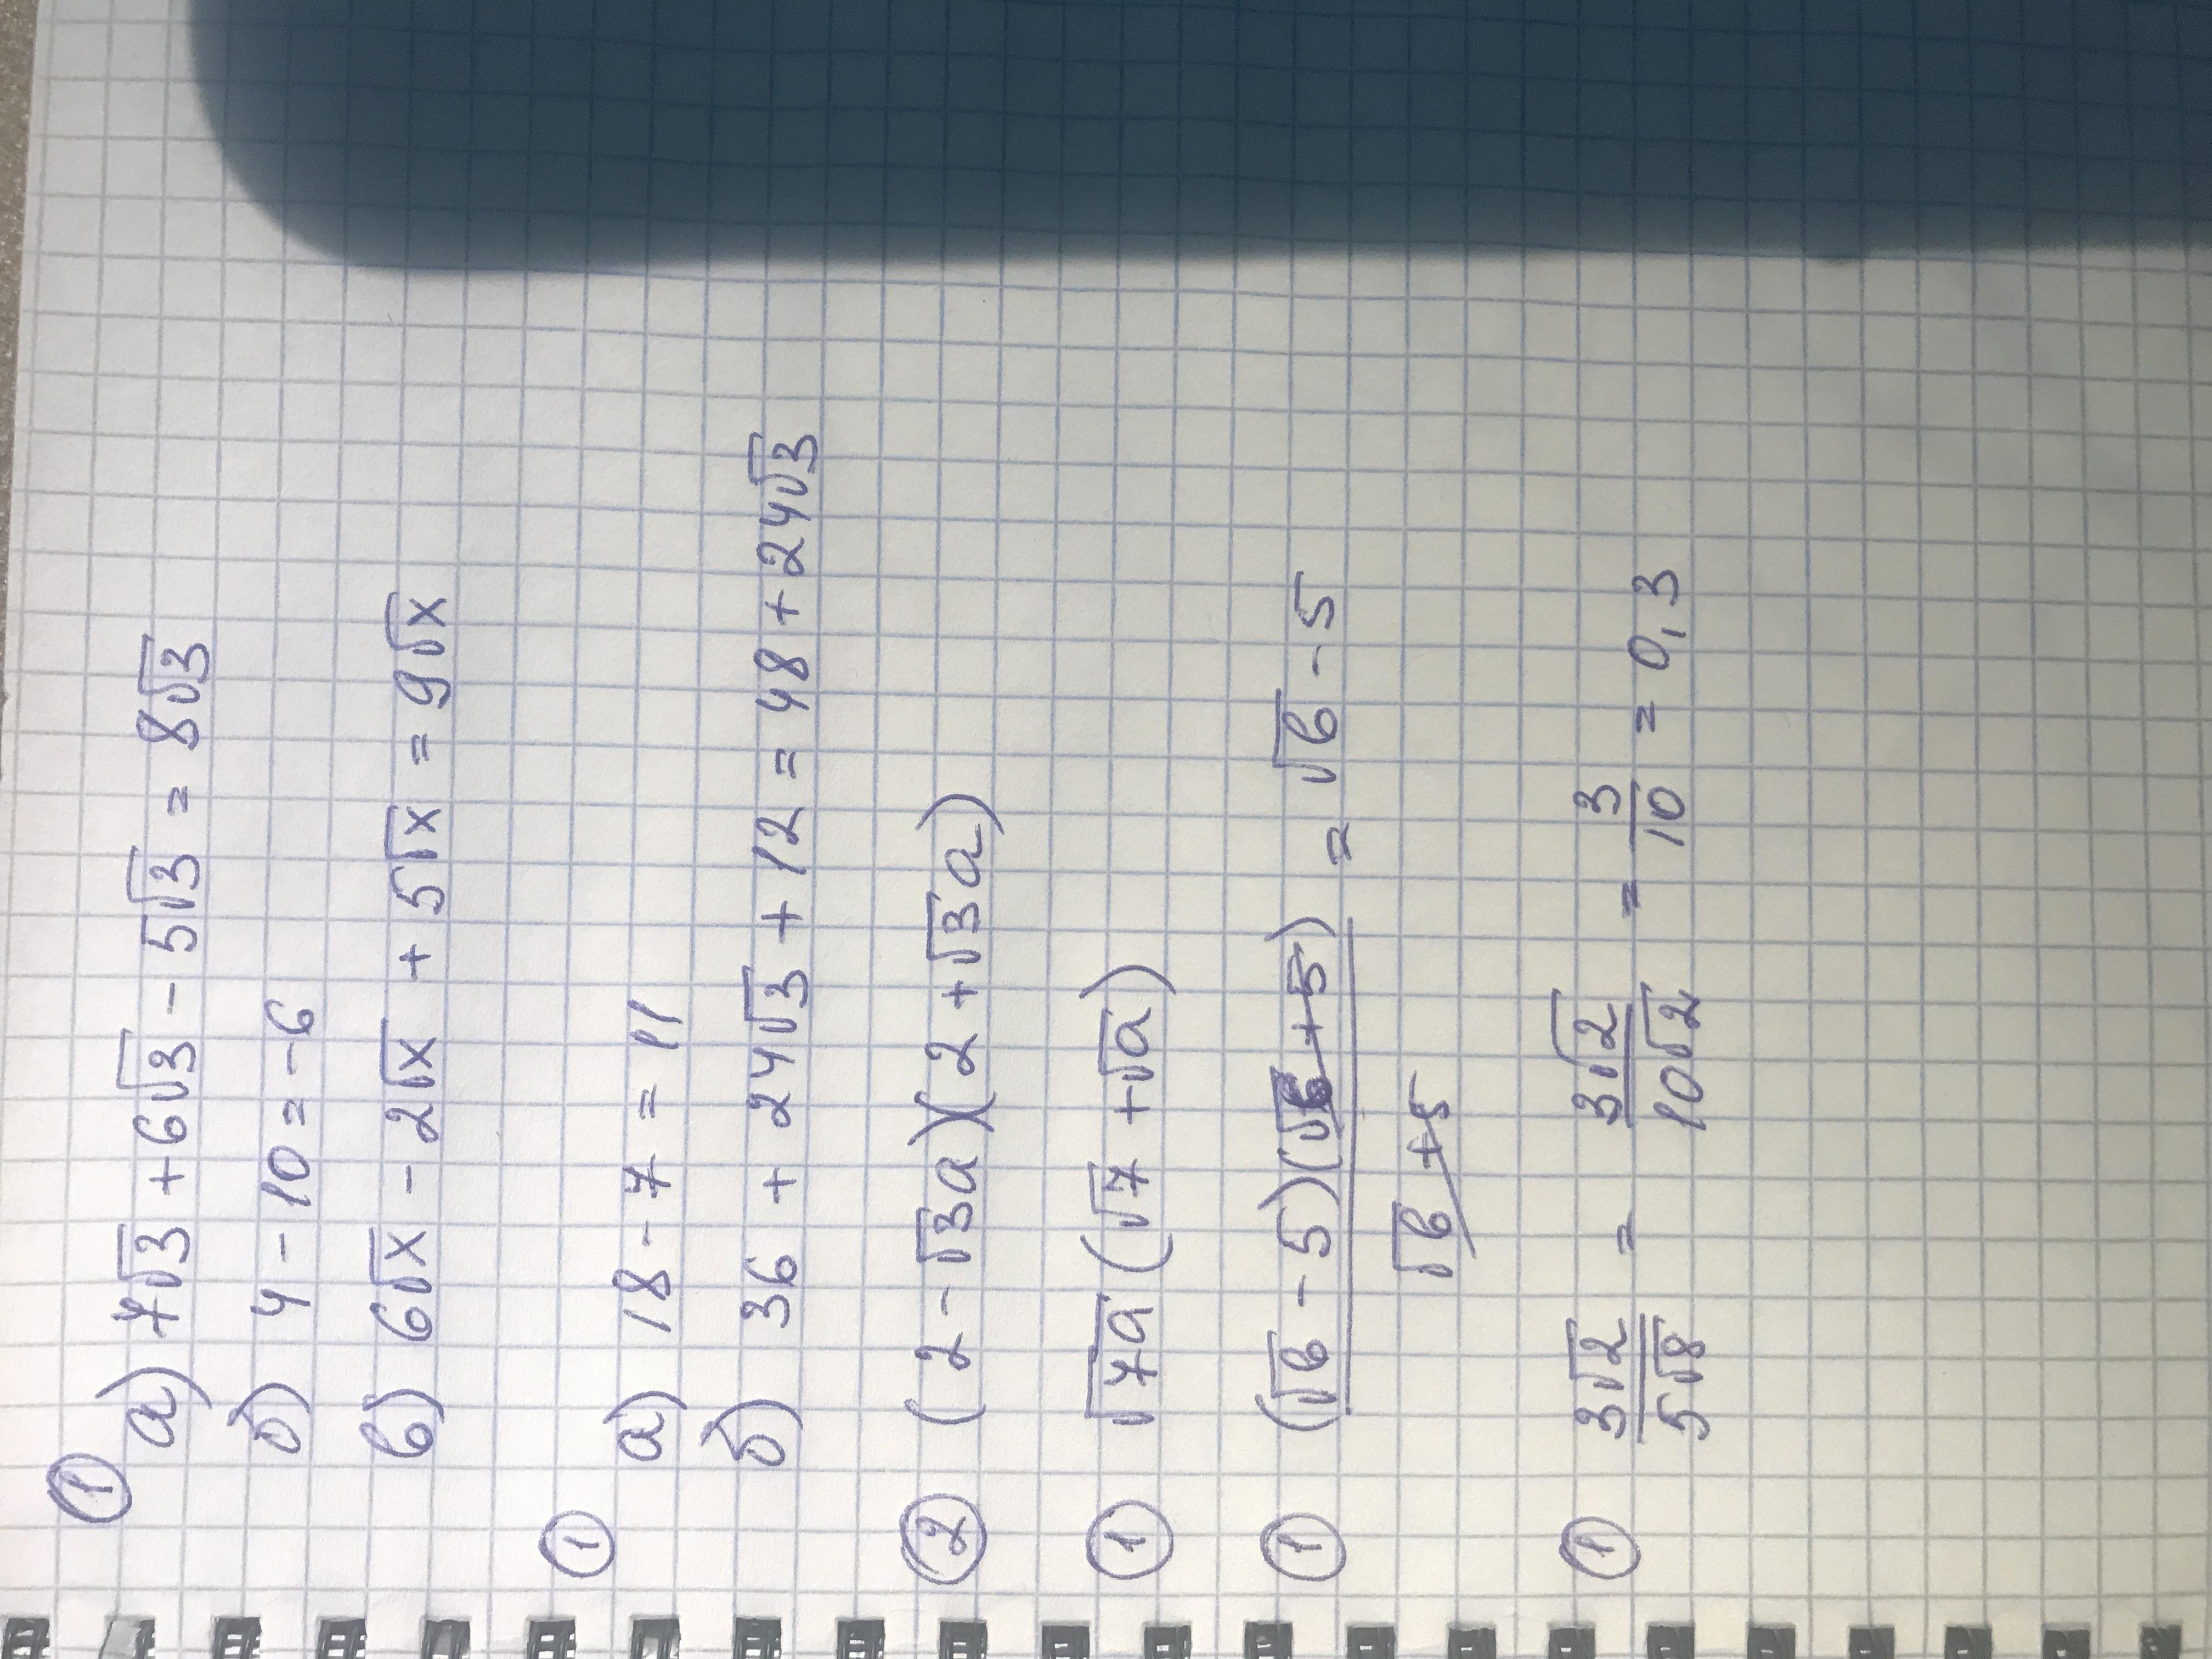 ①
а) 7√3 + 6√3 - 5√3 = 8√3
б) 4 - 10 = -6
в) 6√x - 2√x + 5√x = 9√x
①
а) 18 - 7 = 11
б) 36 + 24√3 + 12 = 48 + 24√3
② (2 - √3a)(2 + √3a)
① √7a (√7 + √a)
① (√6 - 5)(√6 + 5) / √6 + 5 = √6 - 5
① 3√2 / 5√8 = 3√2 / 10√2 = 3/10 = 0,3